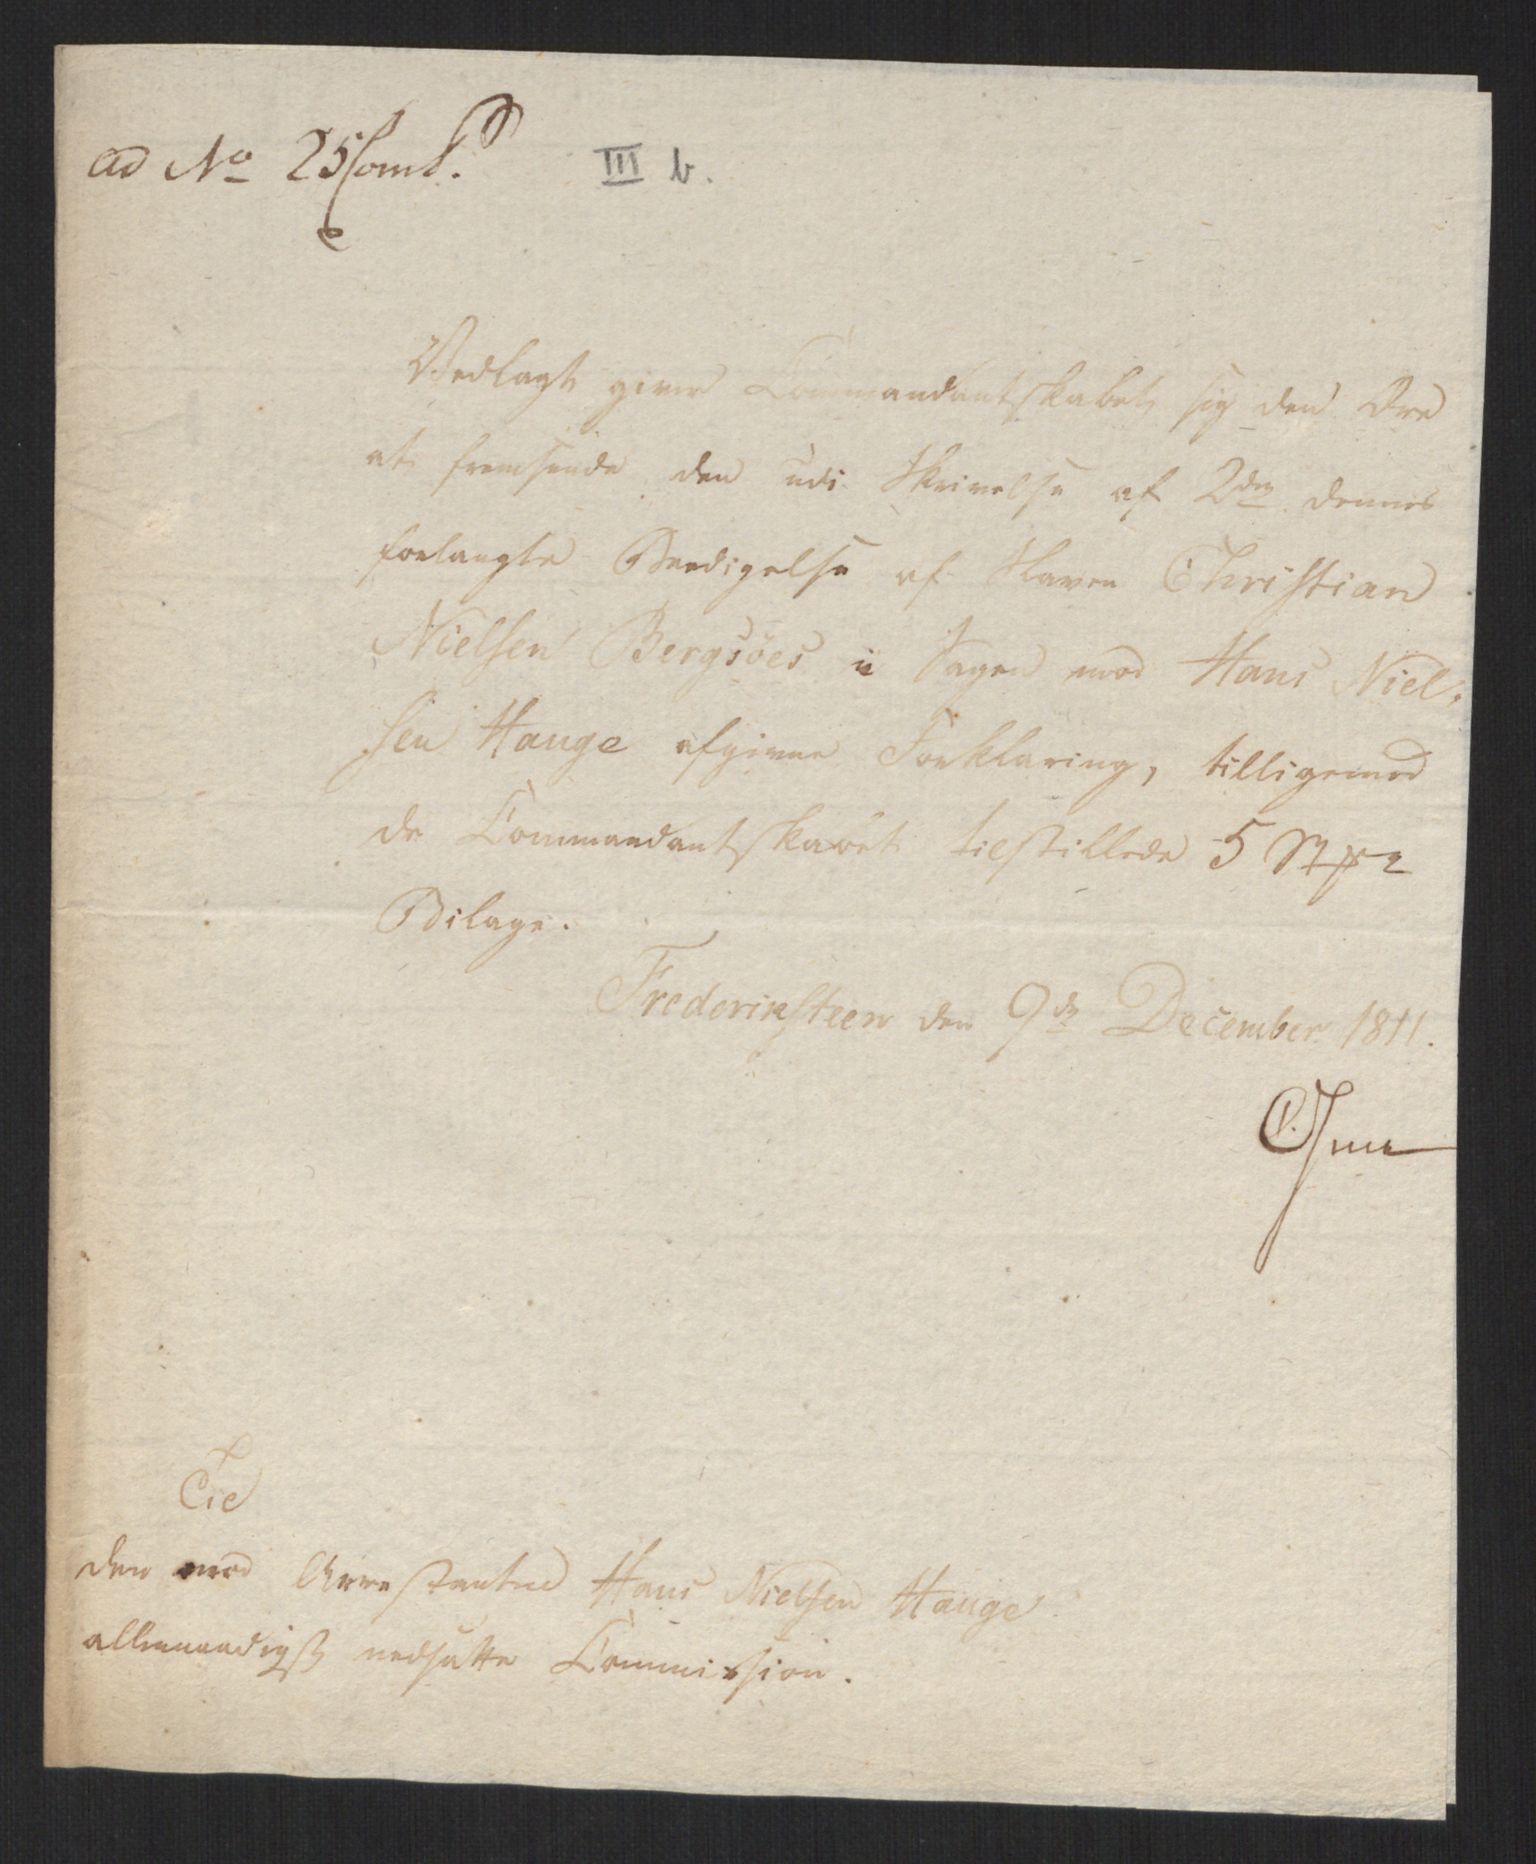 ad No 25
III b.
Vedlagt giver Commandantskabet sig den Ære
at fremsende den udi Skrivelse af 2den dennes
forlangte Beedigelse af Slaven Christian
Nielsen Bergsöes i Sagen mod Hans Niel-
sen Hauge afgivne Forklaring, tilligemed
de Commandantskabet tilstillede 5 Stkr
Bilage.
Frederiksteen den 9de December 1811.
Til
den mod Arrestanten Hans Nielsen Hauge
allernaadigst nedsatte Commission.